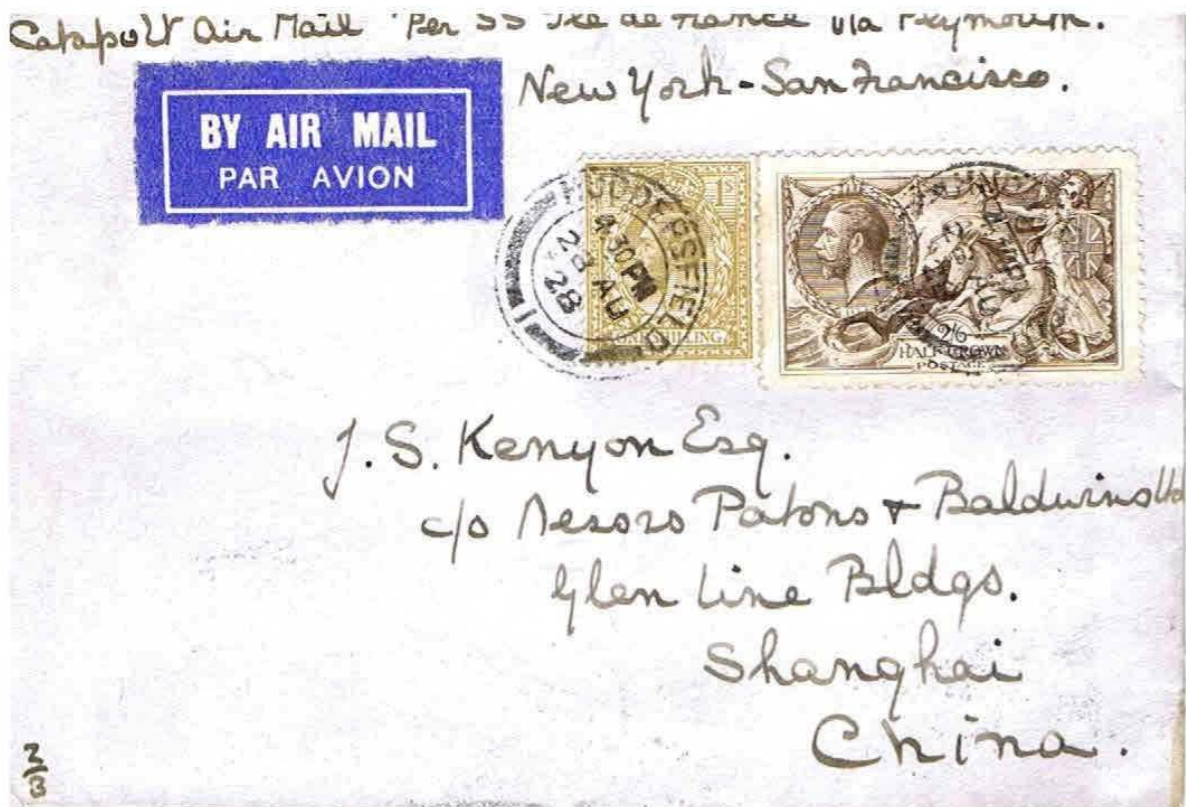 Catapult Air Mail "Per SS Ile de France via Plymouth.
New York - San Francisco.
BY AIR MAIL
PAR AVION
HUDDERSFIELD
4.30 PM
28 AU
28
1S
ONE SHILLING.
2/6
HALF CROWN
POSTAGE
J. S. Kenyon Esq.
c/o Messrs Patons & Baldwins Ltd
Glen Line Bldgs.
Shanghai
China.
2/3